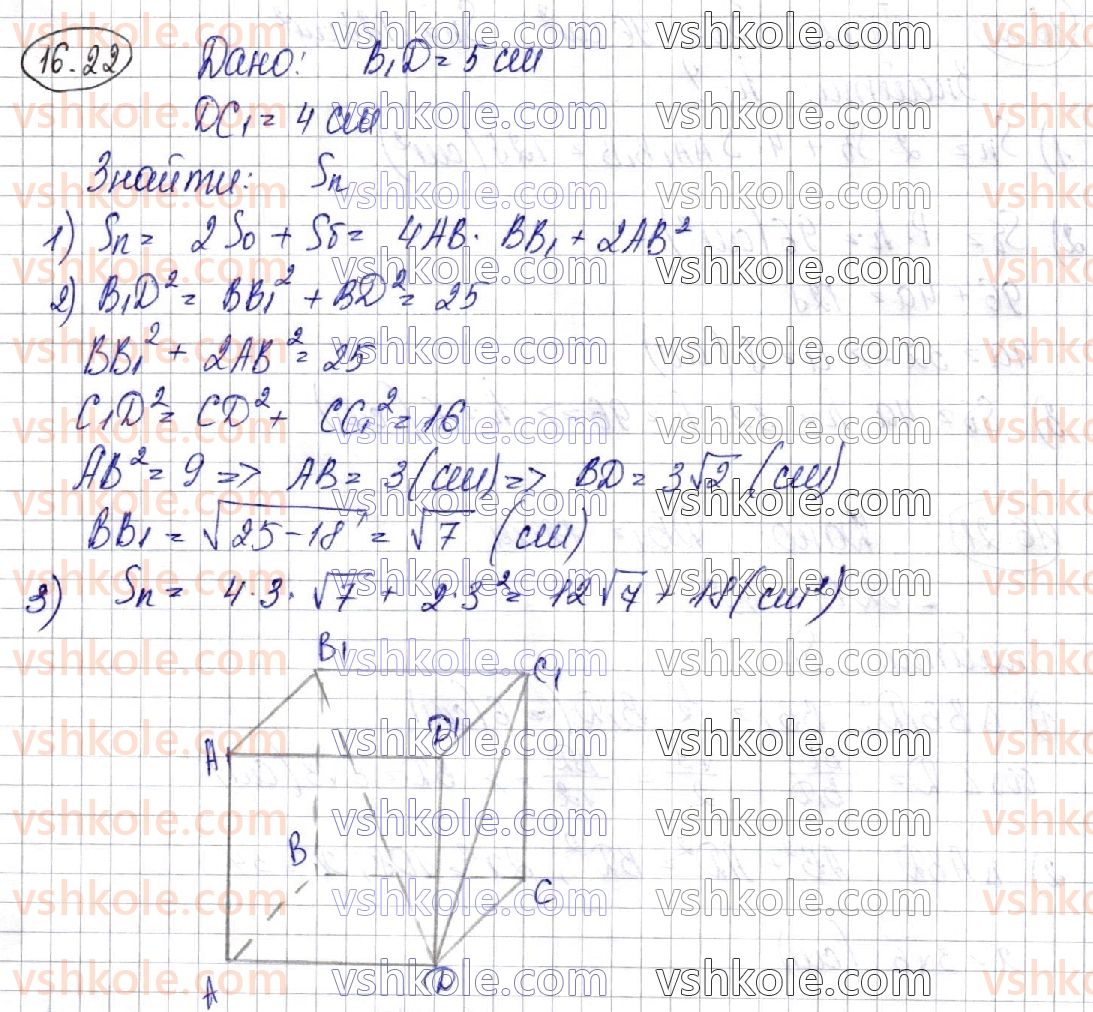 16.22 Дано: B₁D = 5 см
DC₁ = 4 см
Знайти: Sп
1) Sп = 2So + Sб = 4AB · BB₁ + 2AB²
2) B₁D² = BB₁² + BD² = 25
BB₁² + 2AB² = 25
C₁D² = CD² + CC₁² = 16
AB² = 9 => AB = 3 (см) => BD = 3√2 (см)
BB₁ = √25-18 = √7 (см)
3) Sп = 4·3·√7 + 2·3² = 12√7 + 18 (см²)
B₁
C₁
A₁
D₁
B
C
A
D
vshkole.com